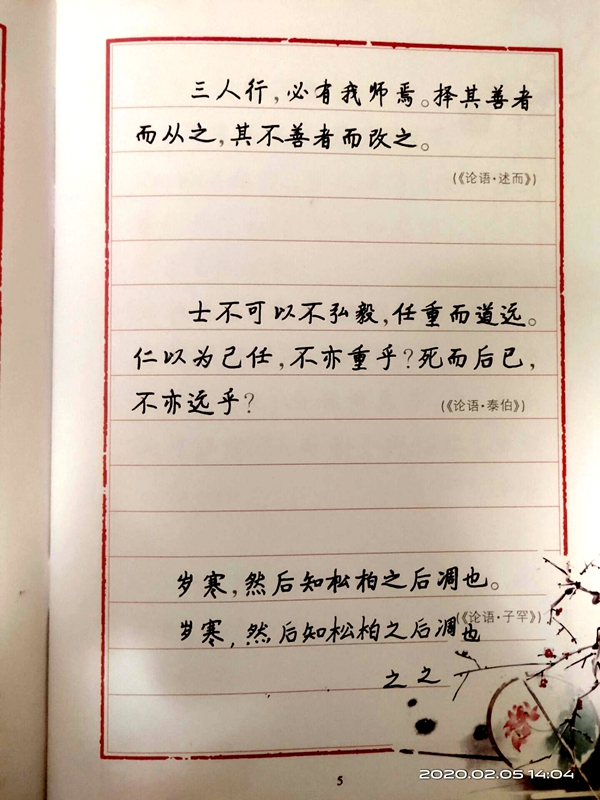 三人行,必有我师焉。择其善者
而从之,其不善者而改之。
(《论语·述而》)
士不可以不弘毅,任重而道远。
仁以为己任,不亦重乎?死而后已,
不亦远乎?
(《论语·泰伯》)
岁寒,然后知松柏之后凋也。
(《论语·子罕》)
岁寒,然后知松柏之后凋也
之之
5
2020.02.05 14:04